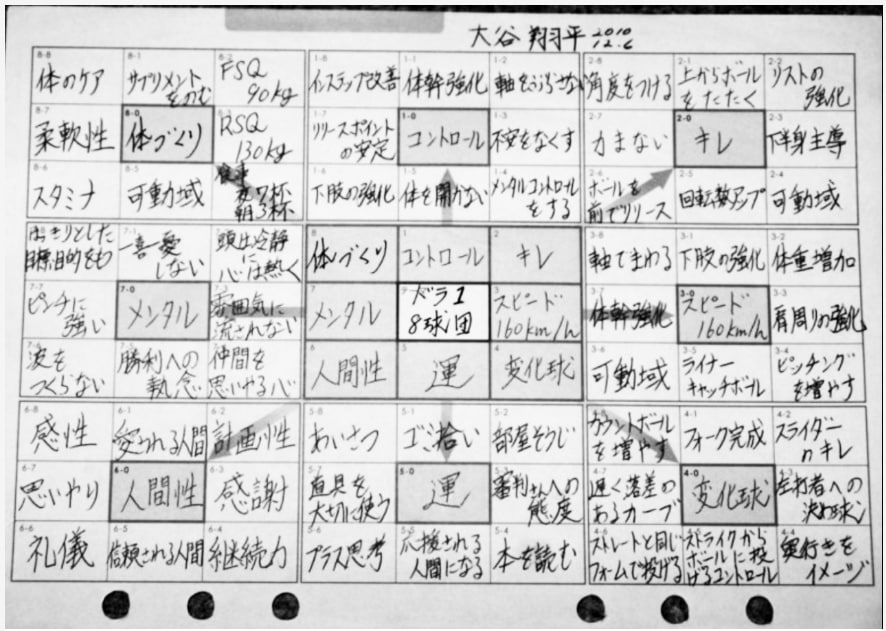 大谷 翔平 2010 12.6
8-8 8-1 8-2 1-8 1-1 1-2 2-8 2-1 2-2
体のケア サプリメントをのむ FSQ 90kg インステップ改善 体幹強化 軸をぶらさない 角度をつける 上からボールをたたく リストの強化
8-7 8-0 8-3 1-7 1-0 1-3 2-7 2-0 2-3
柔軟性 体づくり RSQ 130kg リリースポイントの安定 コントロール 不安をなくす 力まない キレ 下半身主導
8-6 8-5 1-6 1-5 1-4 2-6 2-5 2-4
スタミナ 可動域 食事 夜7杯 朝3杯 下肢の強化 体を開かない メンタルコントロールをする ボールを前でリリース 回転数アップ 可動域
7-1 8 1 2 3-8 3-1 3-2
はっきりとした目標、目的をもつ 一喜一憂しない 頭は冷静に心は熱く 体づくり コントロール キレ 軸でまわる 下肢の強化 体重増加
7-7 7-0 7-3 7 3 3-7 3-0 3-3
ピンチに強い メンタル 雰囲気に流されない メンタル ドラ1 8球団 スピード 160km/h 体幹強化 スピード 160km/h 肩周りの強化
7-6 7-5 6 5 4 3-6 3-5 3-4
波をつくらない 勝利への執念 仲間を思いやる心 人間性 運 変化球 可動域 ライナーキャッチボール ピッチングを増やす
6-8 6-1 6-2 5-8 5-1 5-2 4-1 4-2
感性 愛される人間 計画性 あいさつ ゴミ拾い 部屋そうじ カウントボールを増やす フォーク完成 スライダーのキレ
6-7 6-0 6-3 5-7 5-0 4-7 4-0 4-3
思いやり 人間性 感謝 道具を大切に使う 運 審判さんへの態度 遅く落差のあるカーブ 変化球 左打者への決め球
6-6 6-5 6-4 5-6 5-5 5-4 4-6
礼儀 信頼される人間 継続力 プラス思考 応援される人間になる 本を読む ストレートと同じフォームで投げる ストライクからボールに投げるコントロール 奥行きをイメージ